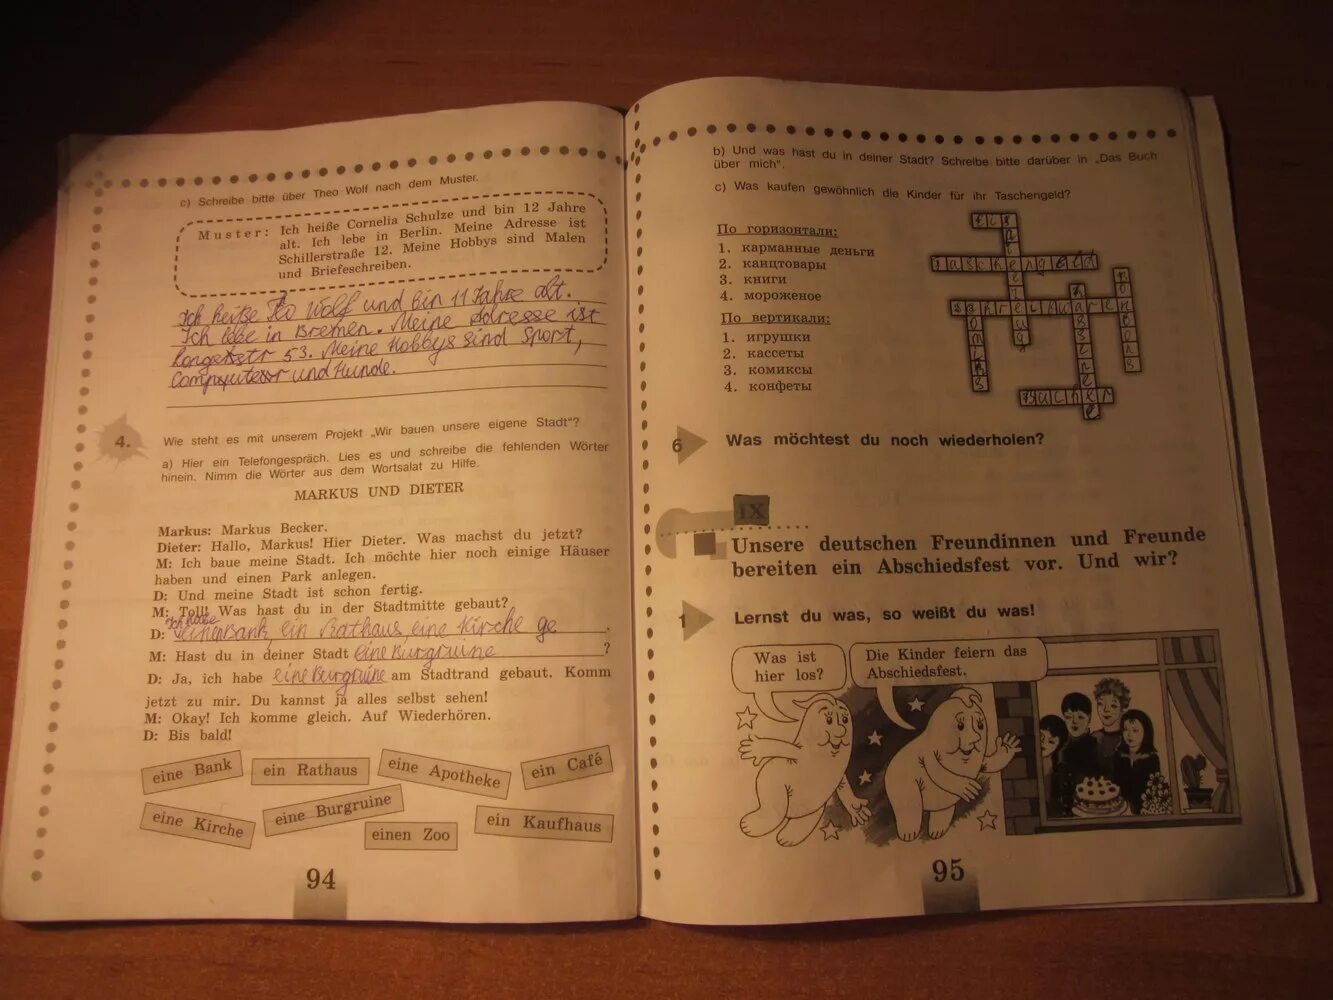 c) Schreibe bitte über Theo Wolf nach dem Muster.
Muster: Ich heiße Cornelia Schulze und bin 12 Jahre
alt. Ich lebe in Berlin. Meine Adresse ist
Schillerstraße 12. Meine Hobbys sind Malen
und Briefeschreiben.
Ich heiße Wolf und bin 11 Jahre alt.
Ich lebe in Bremen. Meine Adresse ist
53. Meine Hobbys sind Sport,
und Hunde.
4.
Wie steht es mit unserem Projekt „Wir bauen unsere eigene Stadt“?
a) Hier ein Telefongespräch. Lies es und schreibe die fehlenden Wörter
hinein. Nimm die Wörter aus dem Wortsalat zu Hilfe.
MARKUS UND DIETER
Markus: Markus Becker.
Dieter: Hallo, Markus! Hier Dieter. Was machst du jetzt?
M: Ich baue meine Stadt. Ich möchte hier noch einige Häuser
haben und einen Park anlegen.
D: Und meine Stadt ist schon fertig.
M: Toll! Was hast du in der Stadtmitte gebaut?
Ich habe
D: eine Bank, ein Rathaus, eine Kirche ge.
M: Hast du in deiner Stadt eine Burgruine?
D: Ja, ich habe eine Burgruine am Stadtrand gebaut. Komm
jetzt zu mir. Du kannst ja alles selbst sehen!
M: Okay! Ich komme gleich. Auf Wiederhören.
D: Bis bald!
eine Bank
ein Rathaus
eine Apotheke
ein Café
eine Kirche
eine Burgruine
einen Zoo
ein Kaufhaus
94
b) Und was hast du in deiner Stadt? Schreibe bitte darüber in „Das Buch
über mich“.
c) Was kaufen gewöhnlich die Kinder für ihr Taschengeld?
По горизонтали:
1. карманные деньги
2. канцтовары
3. книги
4. мороженое
По вертикали:
1. игрушки
2. кассеты
3. комиксы
4. конфеты
Eis
Taschengeld
Schreibwaren
Bücher
6
Was möchtest du noch wiederholen?
IX
Unsere deutschen Freundinnen und Freunde
bereiten ein Abschiedsfest vor. Und wir?
1
Lernst du was, so weißt du was!
Was ist
hier los?
Die Kinder feiern das
Abschiedsfest.
95